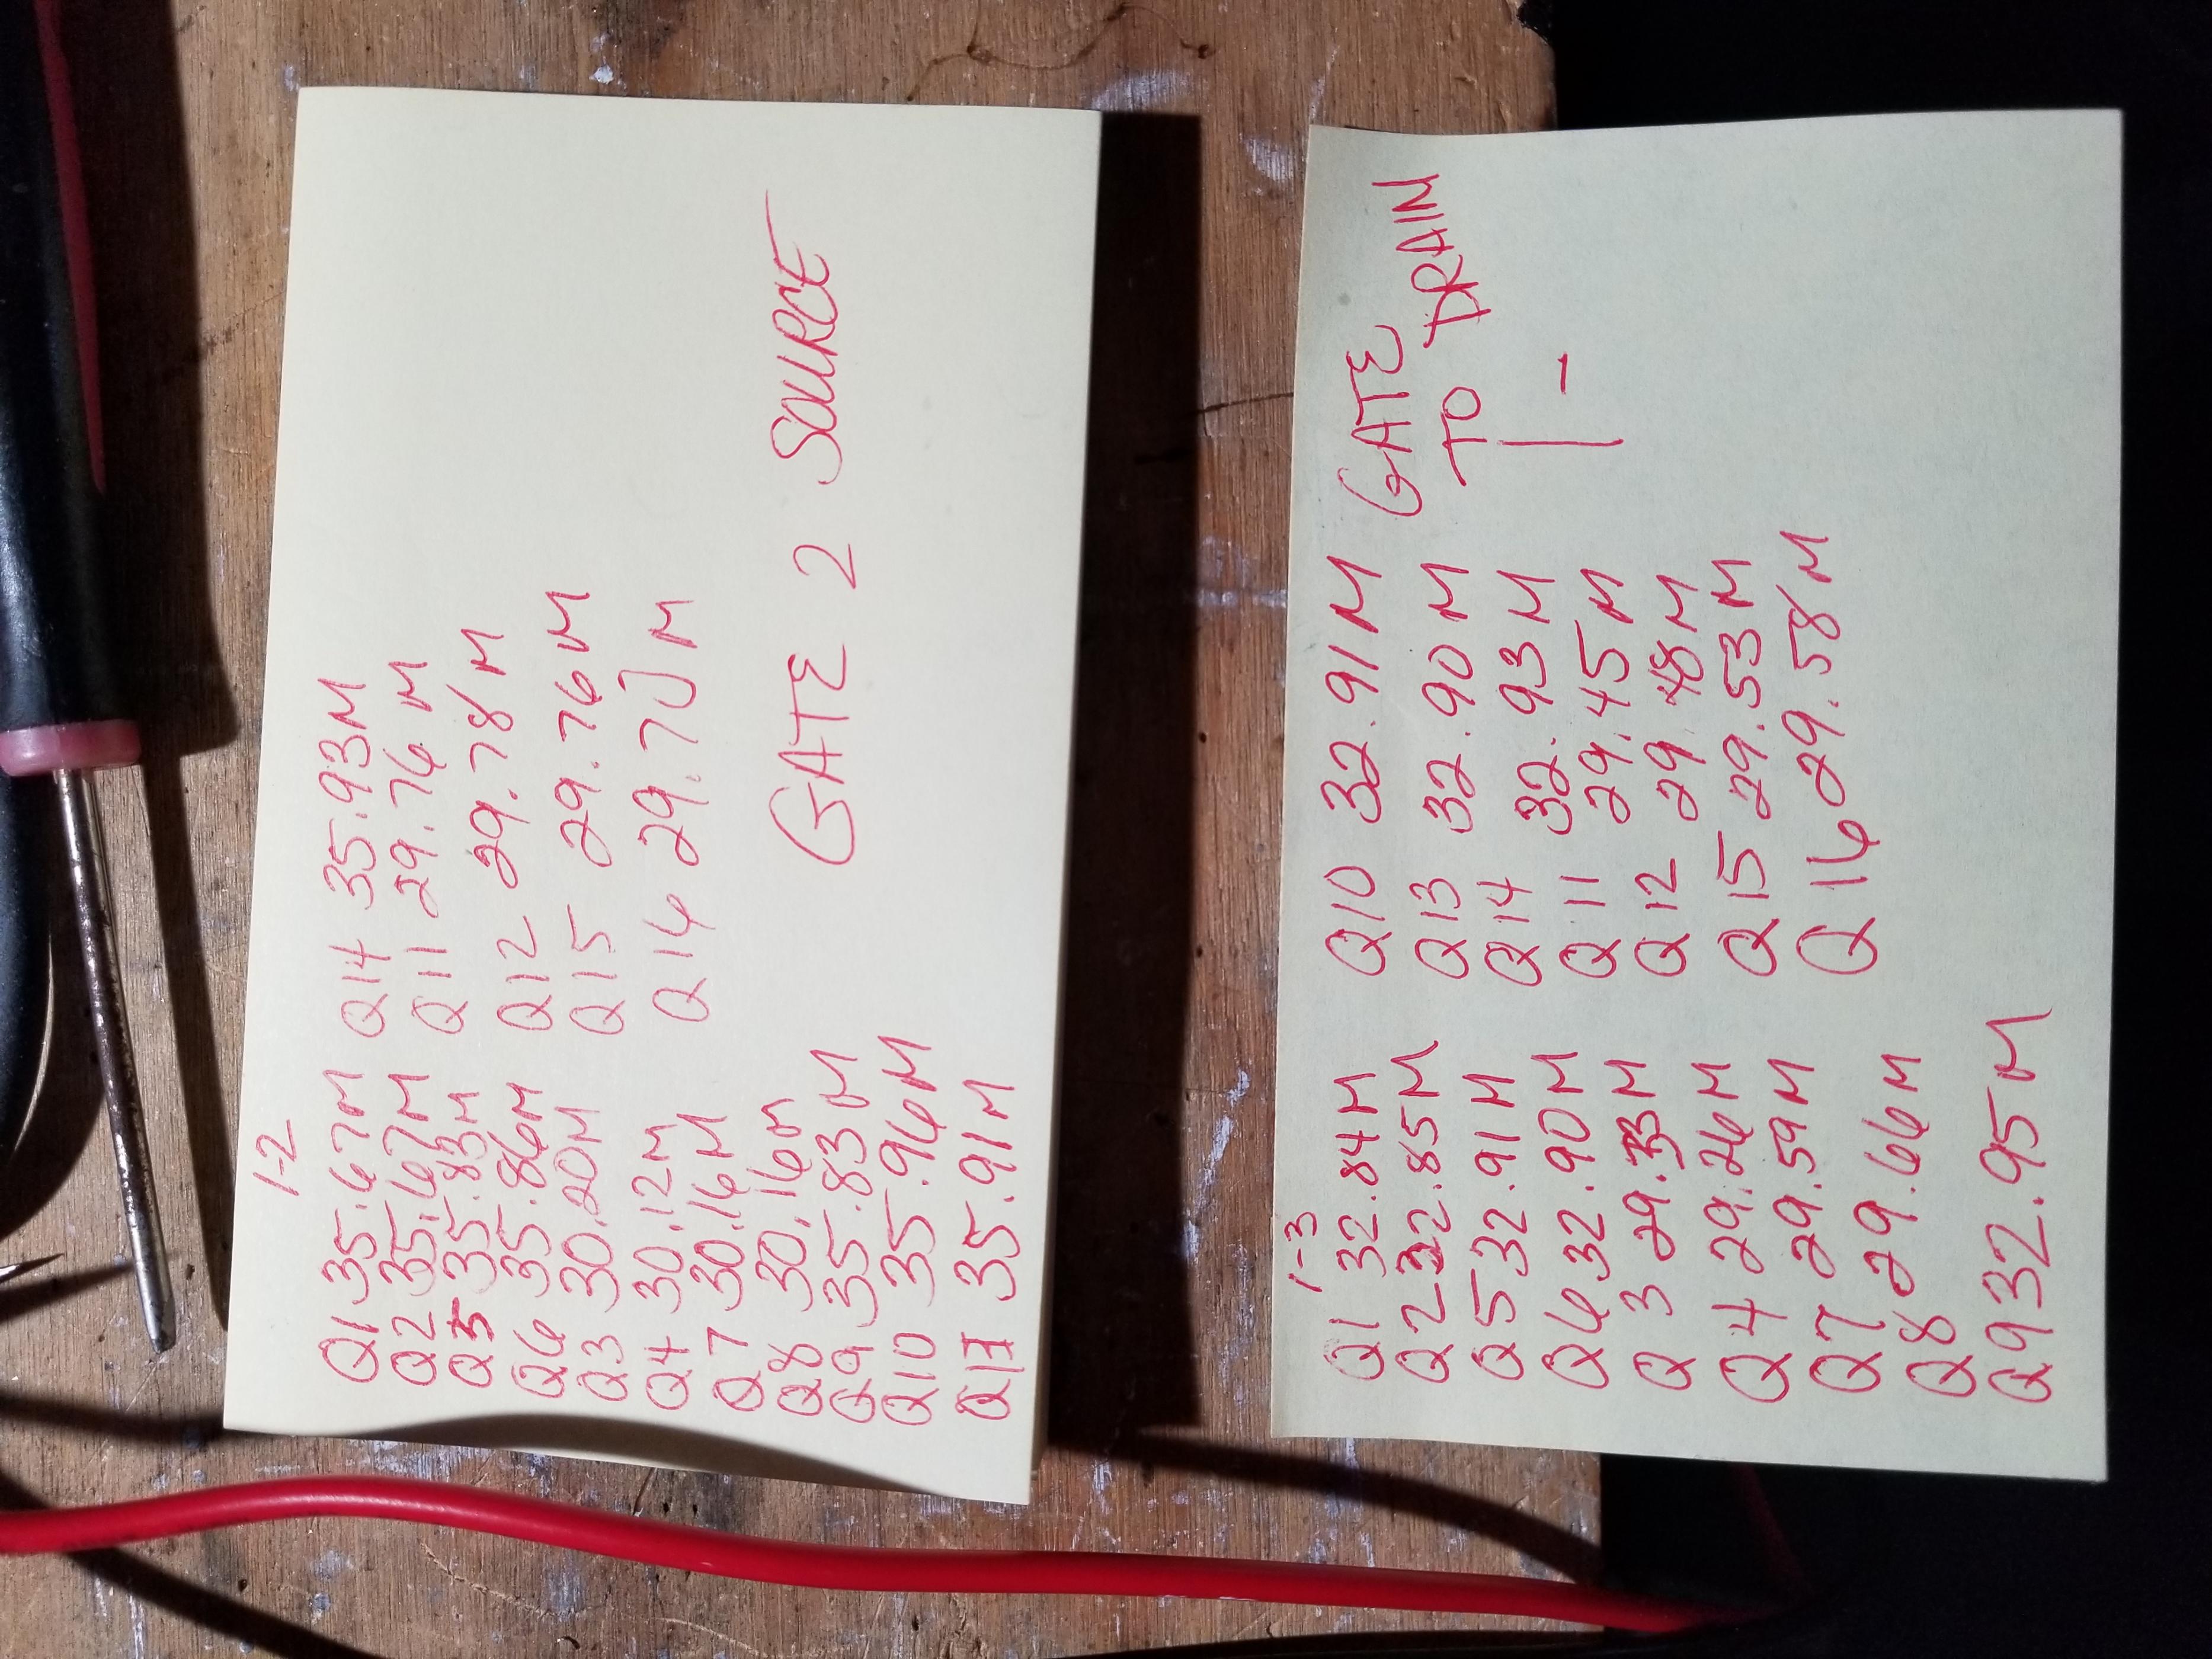 1-2
Q1 35.67M
Q2 35.67M
Q5 35.83M
Q6 35.86M
Q3 30.20M
Q4 30.12M
Q7 30.16M
Q8 30.16M
Q9 35.83M
Q10 35.96M
Q13 35.91M
Q14 35.93M
Q11 29.76M
Q12 29.78M
Q15 29.76M
Q16 29.70M
GATE 2 SOURCE
1-3
Q1 32.84M
Q2 32.85M
Q5 32.91M
Q6 32.90M
Q3 29.33M
Q4 29.26M
Q7 29.59M
Q8 29.66M
Q9 32.95M
Q10 32.91M
Q13 32.90M
Q14 32.93M
Q11 29.45M
Q12 29.48M
Q15 29.53M
Q16 29.58M
GATE
TO DRAIN